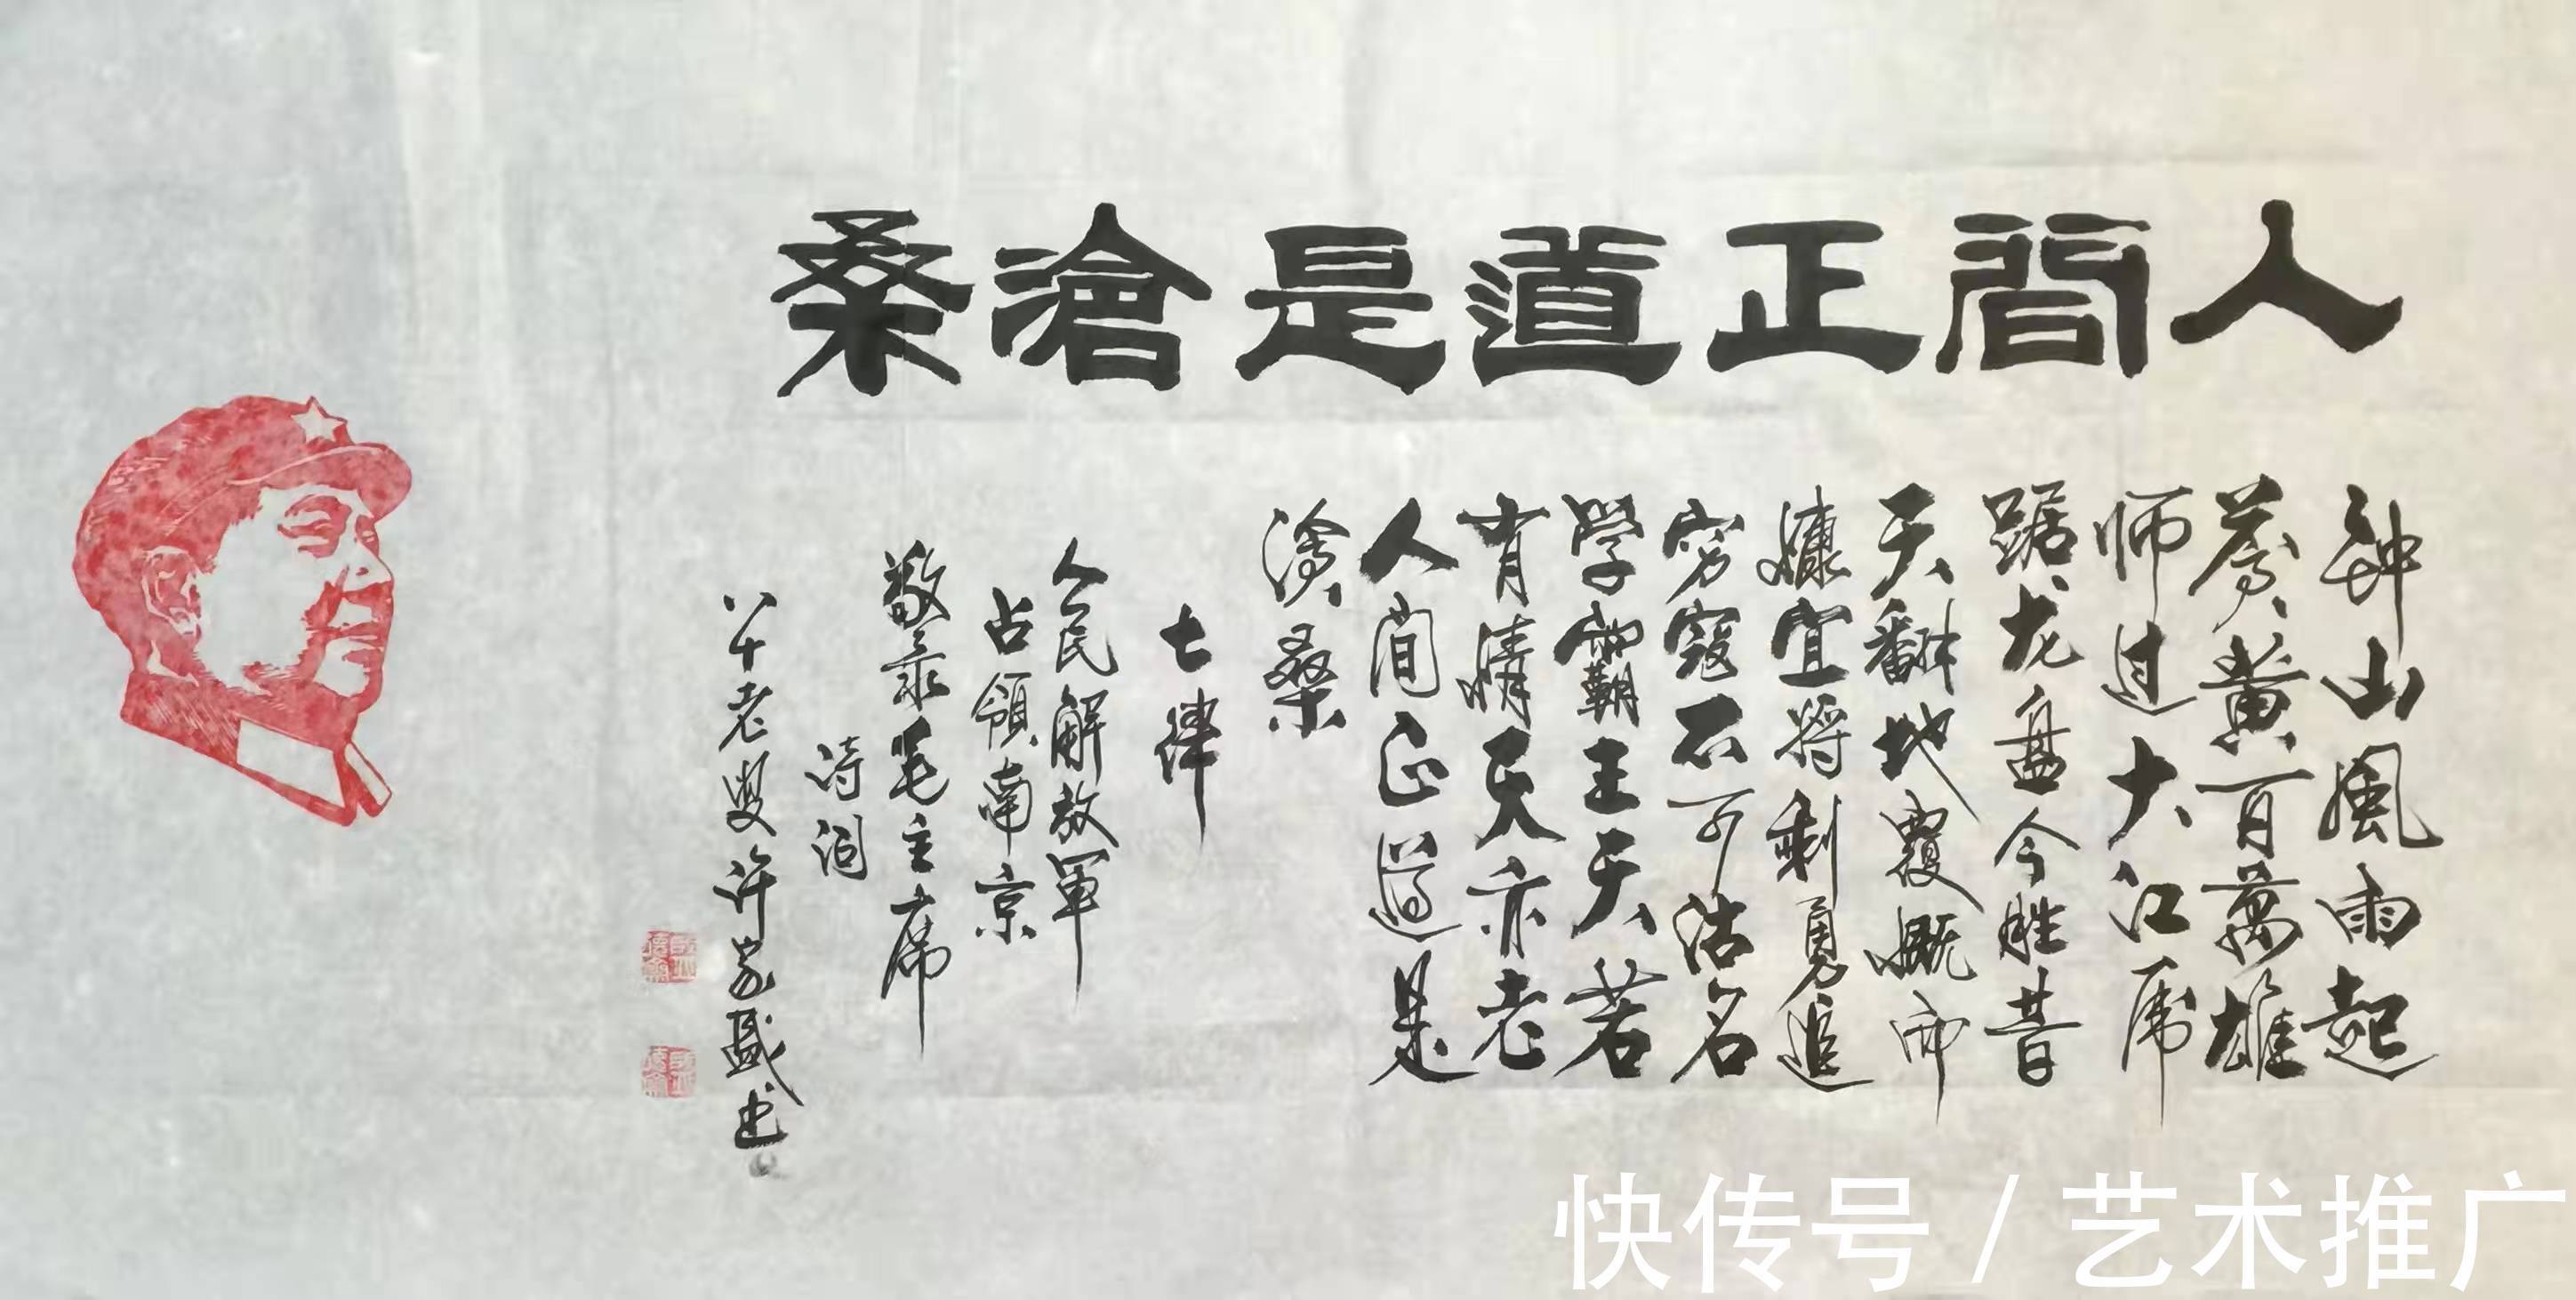 人間正道是滄桑
钟山風雨起
蒼黄百萬雄
师过大江虎
踞龙盘今胜昔
天翻地覆慨而
慷宜将剩勇追
穷寇不可沽名
學霸王天若
有情天亦老
人间正道是
滄桑
七律
人民解放軍
占領南京
敬录毛主席
诗词
八十老叟许家盛书
快传号/艺术推广